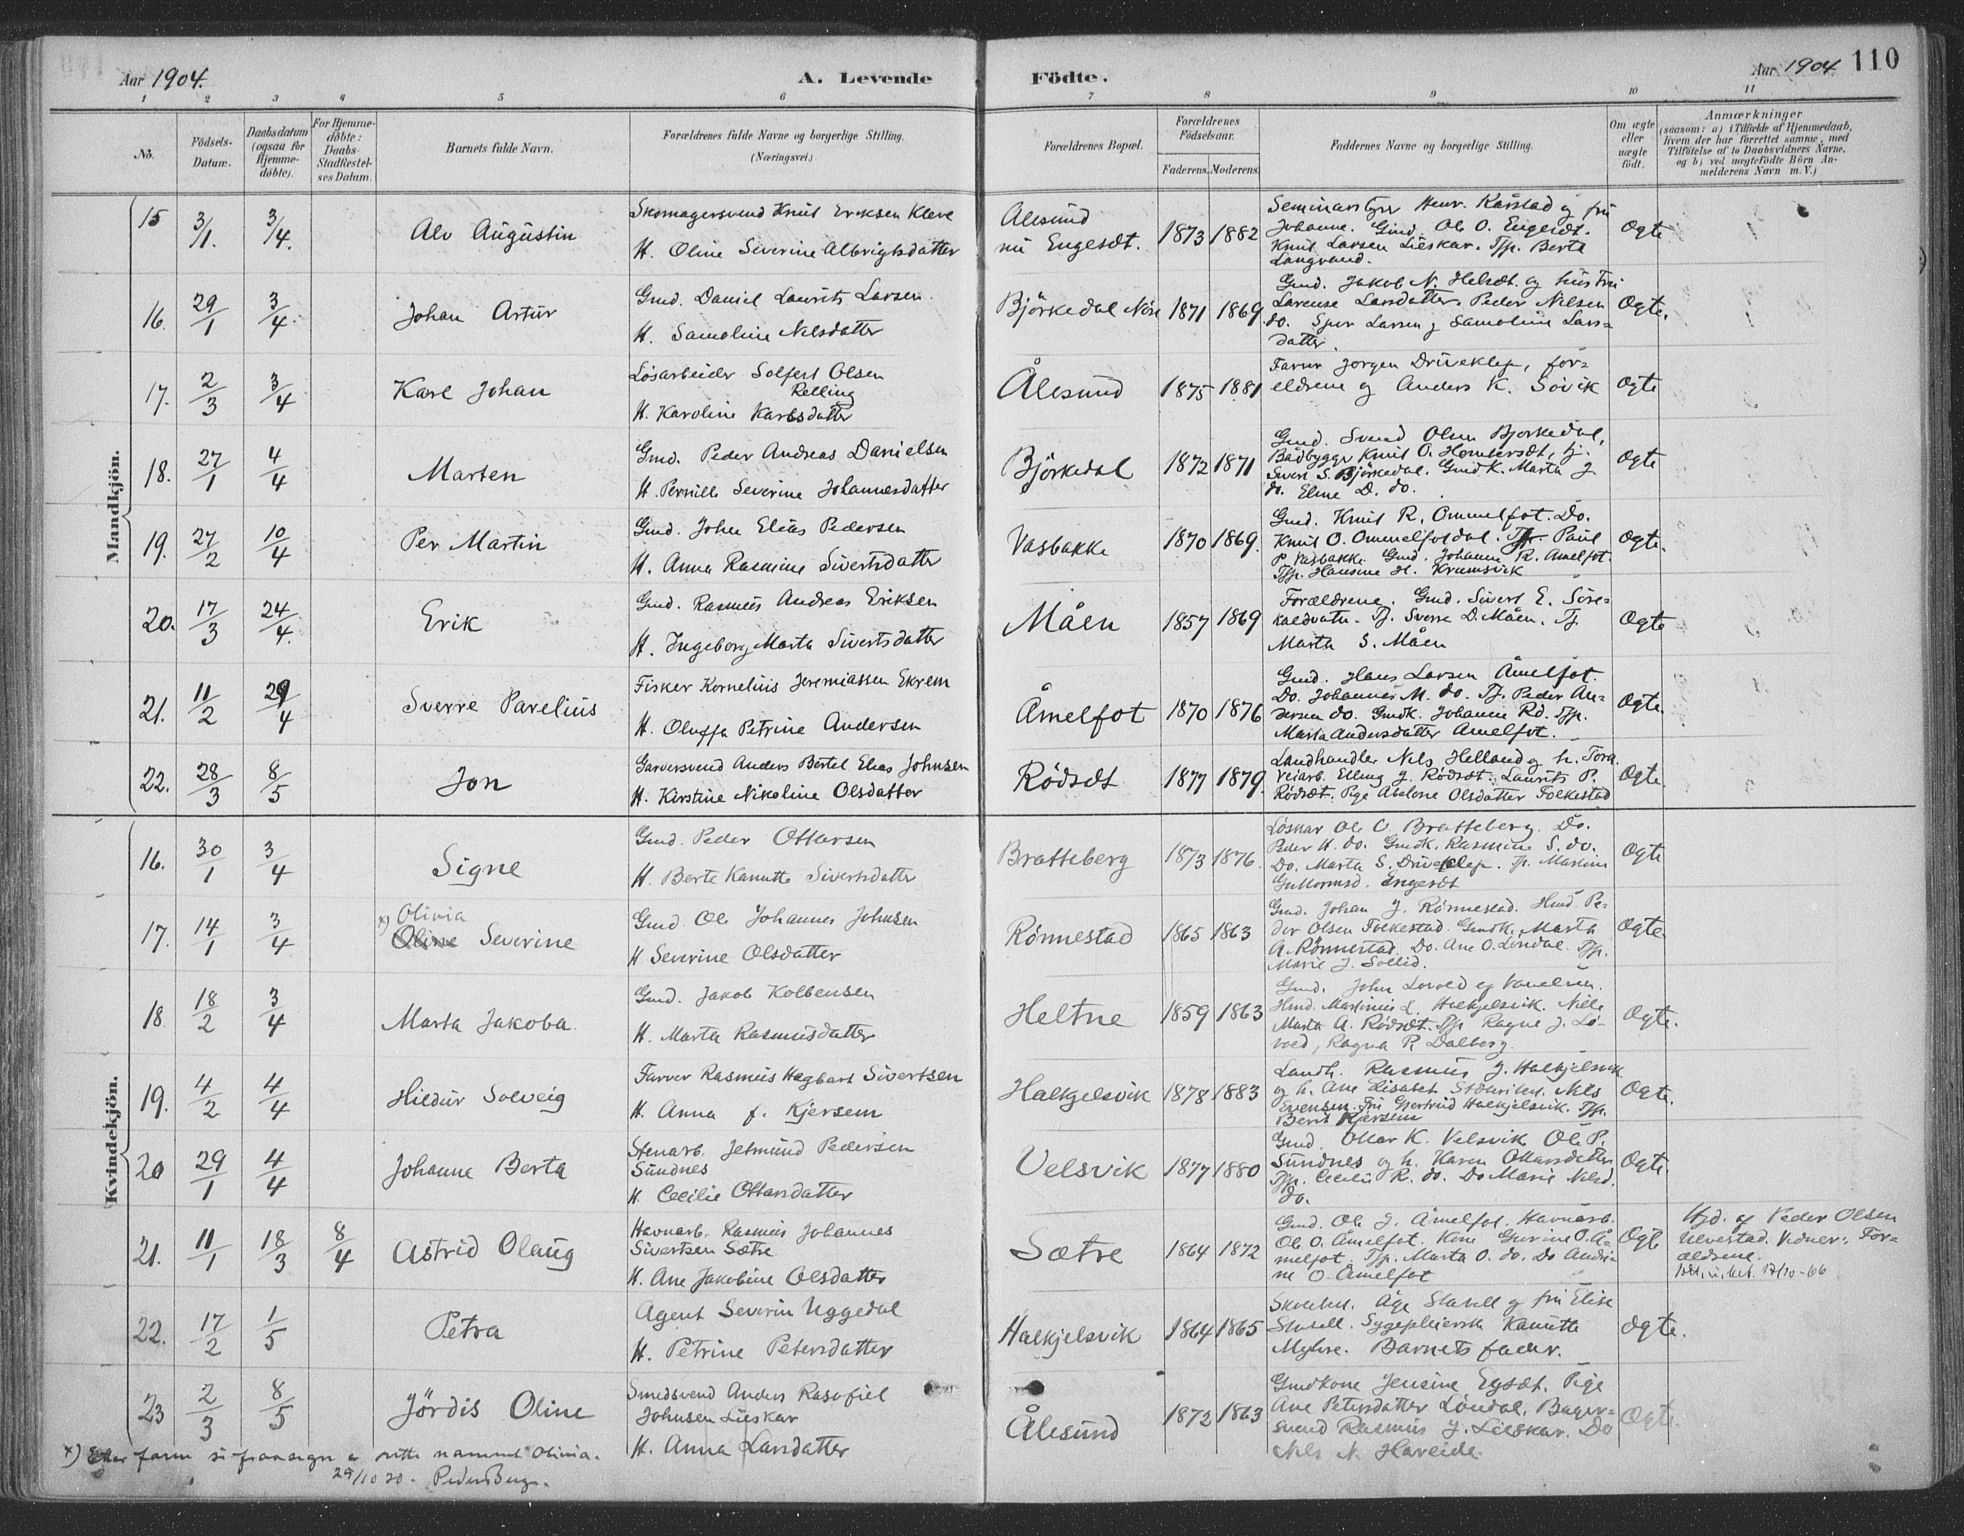 Aar 1904. A. Levende Födte. Aar 1904. 110
1 2 3 4 5 6 7 8 9 10 11
No. Födsels-Datum. Daabsdatum (ogsaa for Hjemme-döbte). For Hjemme-döbte: Daabs-Stadfæstel-ses Datum. Barnets fulde Navn. Forældrenes fulde Navne og borgerlige Stilling. (Næringsvei.) Forældrenes Bopæl. Forældrenes Födselsaar. Faderens. Moderens. Faddernes Navne og borgerlige Stilling. Om ægte eller uægte födt. Anmerkninger (saasom: a) i Tilfælde af Hjemmedaab, hvem der har forrettet samme, med Tilföielse af to Daabsvidners Navne, og b) ved uægtefödte Börn An-melderens Navn m. V.)
Mandkjön.
15 3/1. 3/4. Alv Augustin Skomagersvend Knut Eriksen Kleve
H. Oline Severine Albrigtsdatter
Alesund
nu Engesdt. 1873 1882
Seminarstyr Henr. Kårstad og fru
Johanne. Gmd. Ole O. Engesdt.
Knut Larsen Lieskar. Tjp. Berte
Langvand.
Ogte
16. 29/1 3/4 Johan Artur Gmd. Daniel Laurits Larsen.
H. Samoline Nilsdatter
Björkedal Nöre 1871 1869
Gmd. Jakob N. Helsdt. og hustru
Larense Larsdatter. Peder Nilsen
do. Sper Larsen og Samoline Lars=
datter.
Ogte.
17. 2/3 3/4 Karl Johan Lösarbeider Solfest Olsen
Relling
H. Karoline Karlsdatter
Ålesund 1875 1881
Farver Jorgen Driveklep, for-
eldrene og Anders K. Sövik
Ogte
18. 27/1 4/4 Marten Gmd. Peder Andreas Danielsen
H. Pernille Severine Johannesdatter
Björkedal 1872 1871
Gmd. Svend Olsen Bjorkedal,
Bådbygger Knut O. Homberset, Tj.
Sivert S. Björkedal. Gmdk. Marta J.
do. Eline D. do.
Ogte
19. 27/2 10/4 Per Martin Gmd. John Elias Pedersen
H. Anna Rasmine Sivertsdatter
Vasbakke 1870 1869.
Gmd. Knut R. Ommelfot. Do.
Knut O. Ommelfotdal. Paul
P. Vasbakke. Gmd. Johanne R. Amelfot.
Tjp. Hansine H. Krumsvik
Ogte.
20. 17/3 24/4. Erik Gmd. Rasmus Andreas Eriksen
H. Ingeborg Marta Sivertsdatter
Måen 1857 1869
Forældrene. Gmd. Sivert E. Söre-
kaldvatn. Tj. Sverre D. Måen. Tj.
Marta S. Måen
Ogte
21. 11/2 29/4 Sverre Parelius Fisker Kornelius Jeremiassen Ekrem
H. Oluffa Petrine Andersen
Åmelfot 1870 1876
Gmd. Hans Larsen Åmelfot.
Do. Johannes M. do. Tj. Peder An-
dersen do. Gmdk. Johanne Rd. Tjp.
Marta Andersdatter Amelfot.
Ogte.
22. 28/3 8/5 Jon Garversvend Anders Bertel Elias Johnsen
H. Kirstine Nikoline Olsdatter
Rödsdt 1877 1879.
Landhandler Nils Helland og h. Tora.
Veiarb. Elling J. Rödsdt. Laurits P.
Rödsdt. Pige Abelone Olsdatter Folkestad
Ogte.
Kvindekjön.
16. 30/1 3/4 Signe Gmd. Peder Ottarsen
H. Berte Kanutte Sivertsdatter
Bratteberg 1873 1876.
Löskar Ole C. Bratteberg. Do.
Peder H. do. Gmdk. Rasmine S. do.
Do. Marta S. Driveklep. Tp. Martine
Guttormsd. Engesdt
Ogte
17. 14/1 3/4 x) Olivia
Oline Severine Gmd. Ole Johannes Johnsen
H Severine Olsdatter
Rönnestad 1865 1863
Gmd. Johan J. Rönnestad. Hmd. Pe-
der Olsen Folkestad. Gmdk. Marta
A. Rönnestad. Do. Ane O. Löndal. Tjp.
Marie J. Sollid.
Ogte
18 18/2 3/4 Marta Jakoba. Gmd. Jakob Kolbensen
H. Marta Rasmusdatter
Heltne 1859 1863
Gmd. John
Hmd. Martinus L. Halkjelsvik.
Marta A. Rödsdt. Tjp Ragna J. Lö-
voed, Ragna P. Dalberg.
Ogte.
19. 4/2 4/4 Hildur Solveig Farver Rasmus Hagbart Sivertsen
H. Anna f. Kjersem
Halkjelsvik 1878 1883
Landh. Rasmus J. Halkjelsvik
og h. Ane Elisabet Nils
Evensen. Fru Gjertrud Halkjelsvik. Tjp.
Berit Kjersem
Ogte.
20 29/1 4/4 Johanne Berta Stenarb. Jetmund Pedersen
Sundnes
H. Cecilie Ottarsdatter
Velsvik 1877 1880
Gmd. Ottar K. Velsvik Ole P.
Sundnes og h. Karen Ottarsdatter
Tjp. Cecilie R. do. Do Marie Nilsd.
do.
Ogte.
21. 11/1 18/3 8/4 Astrid Olaug Havnarb. Rasmus Johannes
Sivertsen Sætre
H. Ane Jakobine Olsdatter
Sætre 1864 1872
Gmd. Ole J. Åmelfot. Havnarb.
Ole O. Åmelfot. Kone Gurine O. Å-
melfot. Tjp. Marta O. do. Do Andri-
ne O. Åmelfot
Ogte
Hjd. af Peder Olsen
Ulvestad. Vidner: For-
ældrene.
17/10-66
22. 17/2 1/5 Petra Agent Severin Uggedal
H. Petrine Petersdatter
Halkjelsvik 1864 1865
Skolebest. Åge Statell og fru Elise
Statell. Sygepleiersk Kanutte
Myhre. Barnets fader.
Ogte.
23 2/3 8/5 Jördis Oline Smedsvend Anders Rasofiel
Johnsen Lieskar
H. Anna Larsdatter
Ålesund 1872 1863
Gmdkone Jensine Egsdt. Pige
Ane Petersdatter Löndal. Bager-
svend Rasmus J. Lieskar. Do
Nils N. Hareide.
Ogte.
x) Etter farm si fraasegn er rette namnet Olivia.
29/10 20. Peder Berge.